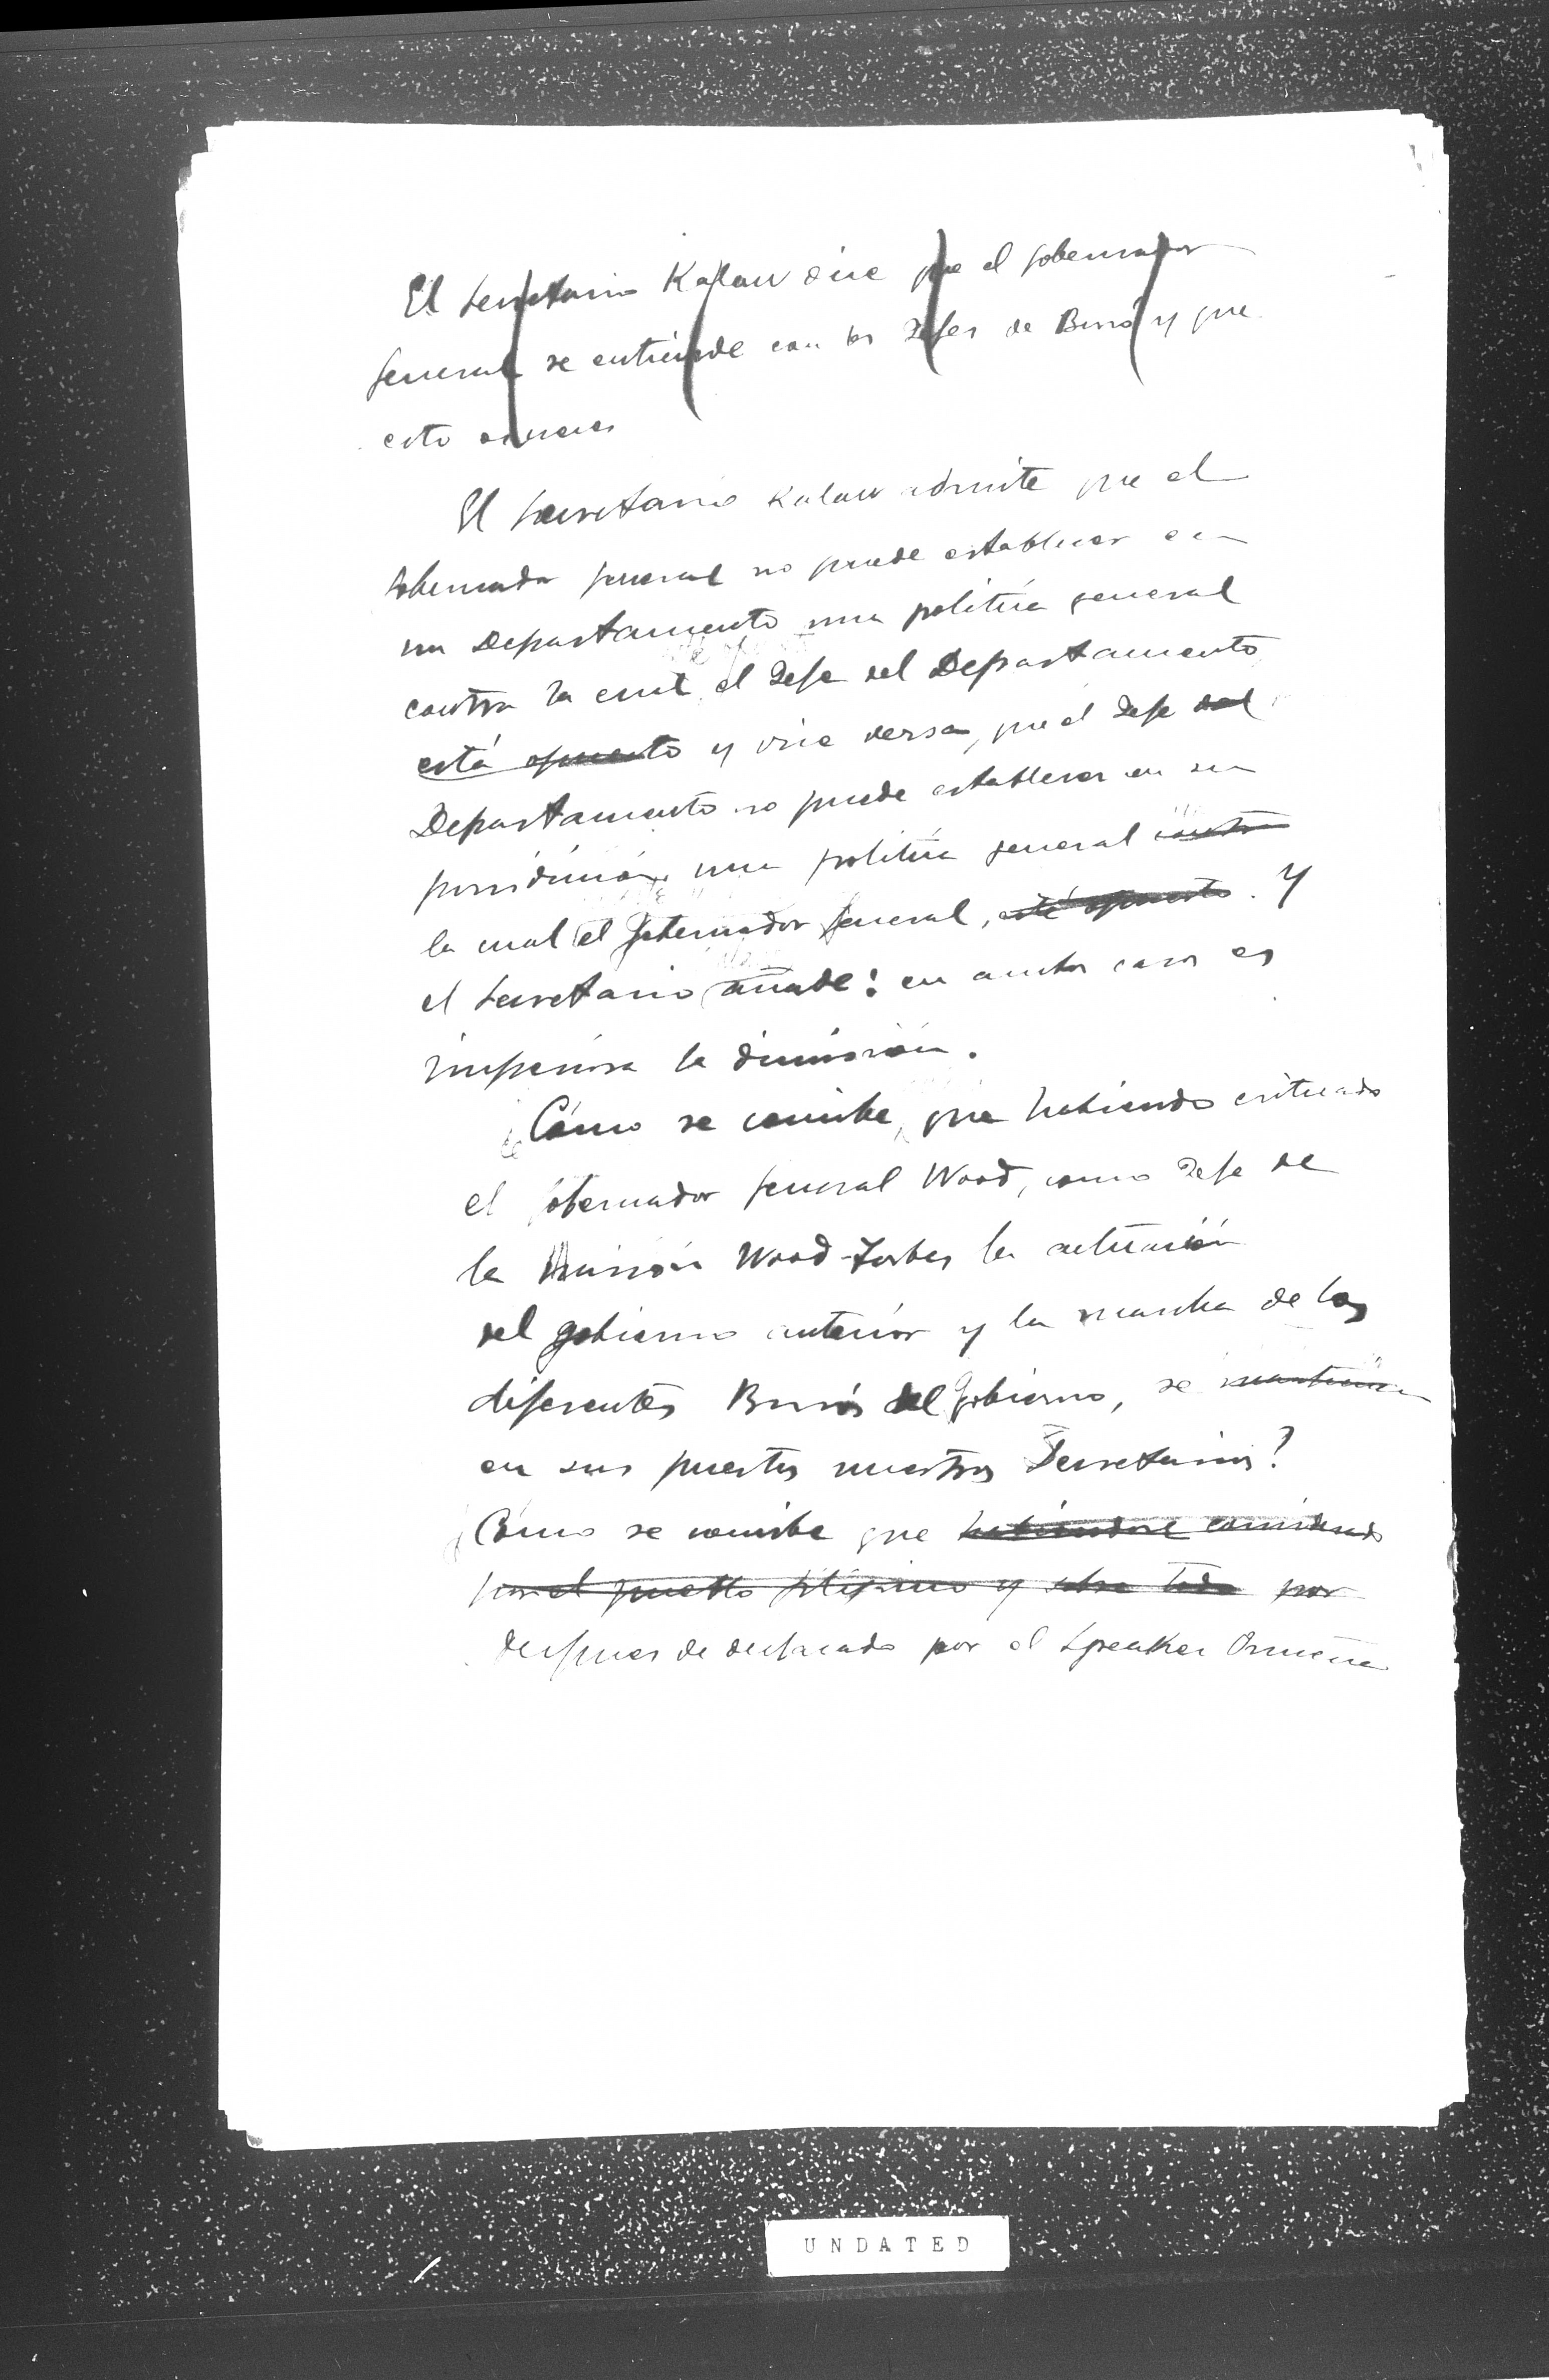 El Secretario Kalaw dice que el gobernador
general se entiende con los Jefes de Buró y que
esto
El Secretario Kalaw admite que el
Gobernador general no puede establecer en
un Departamento una política general
contra la cual el Jefe del Departamento
está opuesto y vice versa, que el Jefe del
Departamento no puede establecer en su
jurisdicción una política general contra
la cual el Gobernador general, esté opuesto. Y
el Secretario añade: en ambos casos es
imperiosa la dimisión.
¿Cómo se concibe, que habiendo criticado
el gobernador general Wood, como Jefe de
la Misión Wood-Forbes la actuación
del gobierno anterior y la marcha de los
diferentes Burós del Gobierno, se mantienen
en sus puestos nuestros Secretarios?
¿Cómo se concibe que habiéndose considerado
por el pueblo filipino y sobre todo por
despues de declarado por el Speaker Osmeña
UNDATED